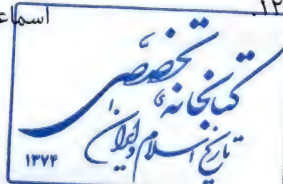 ۱۲.
اسماع
کتابخانه تخصصی
تاریخ اسلام و ایران
۱۳۷۴